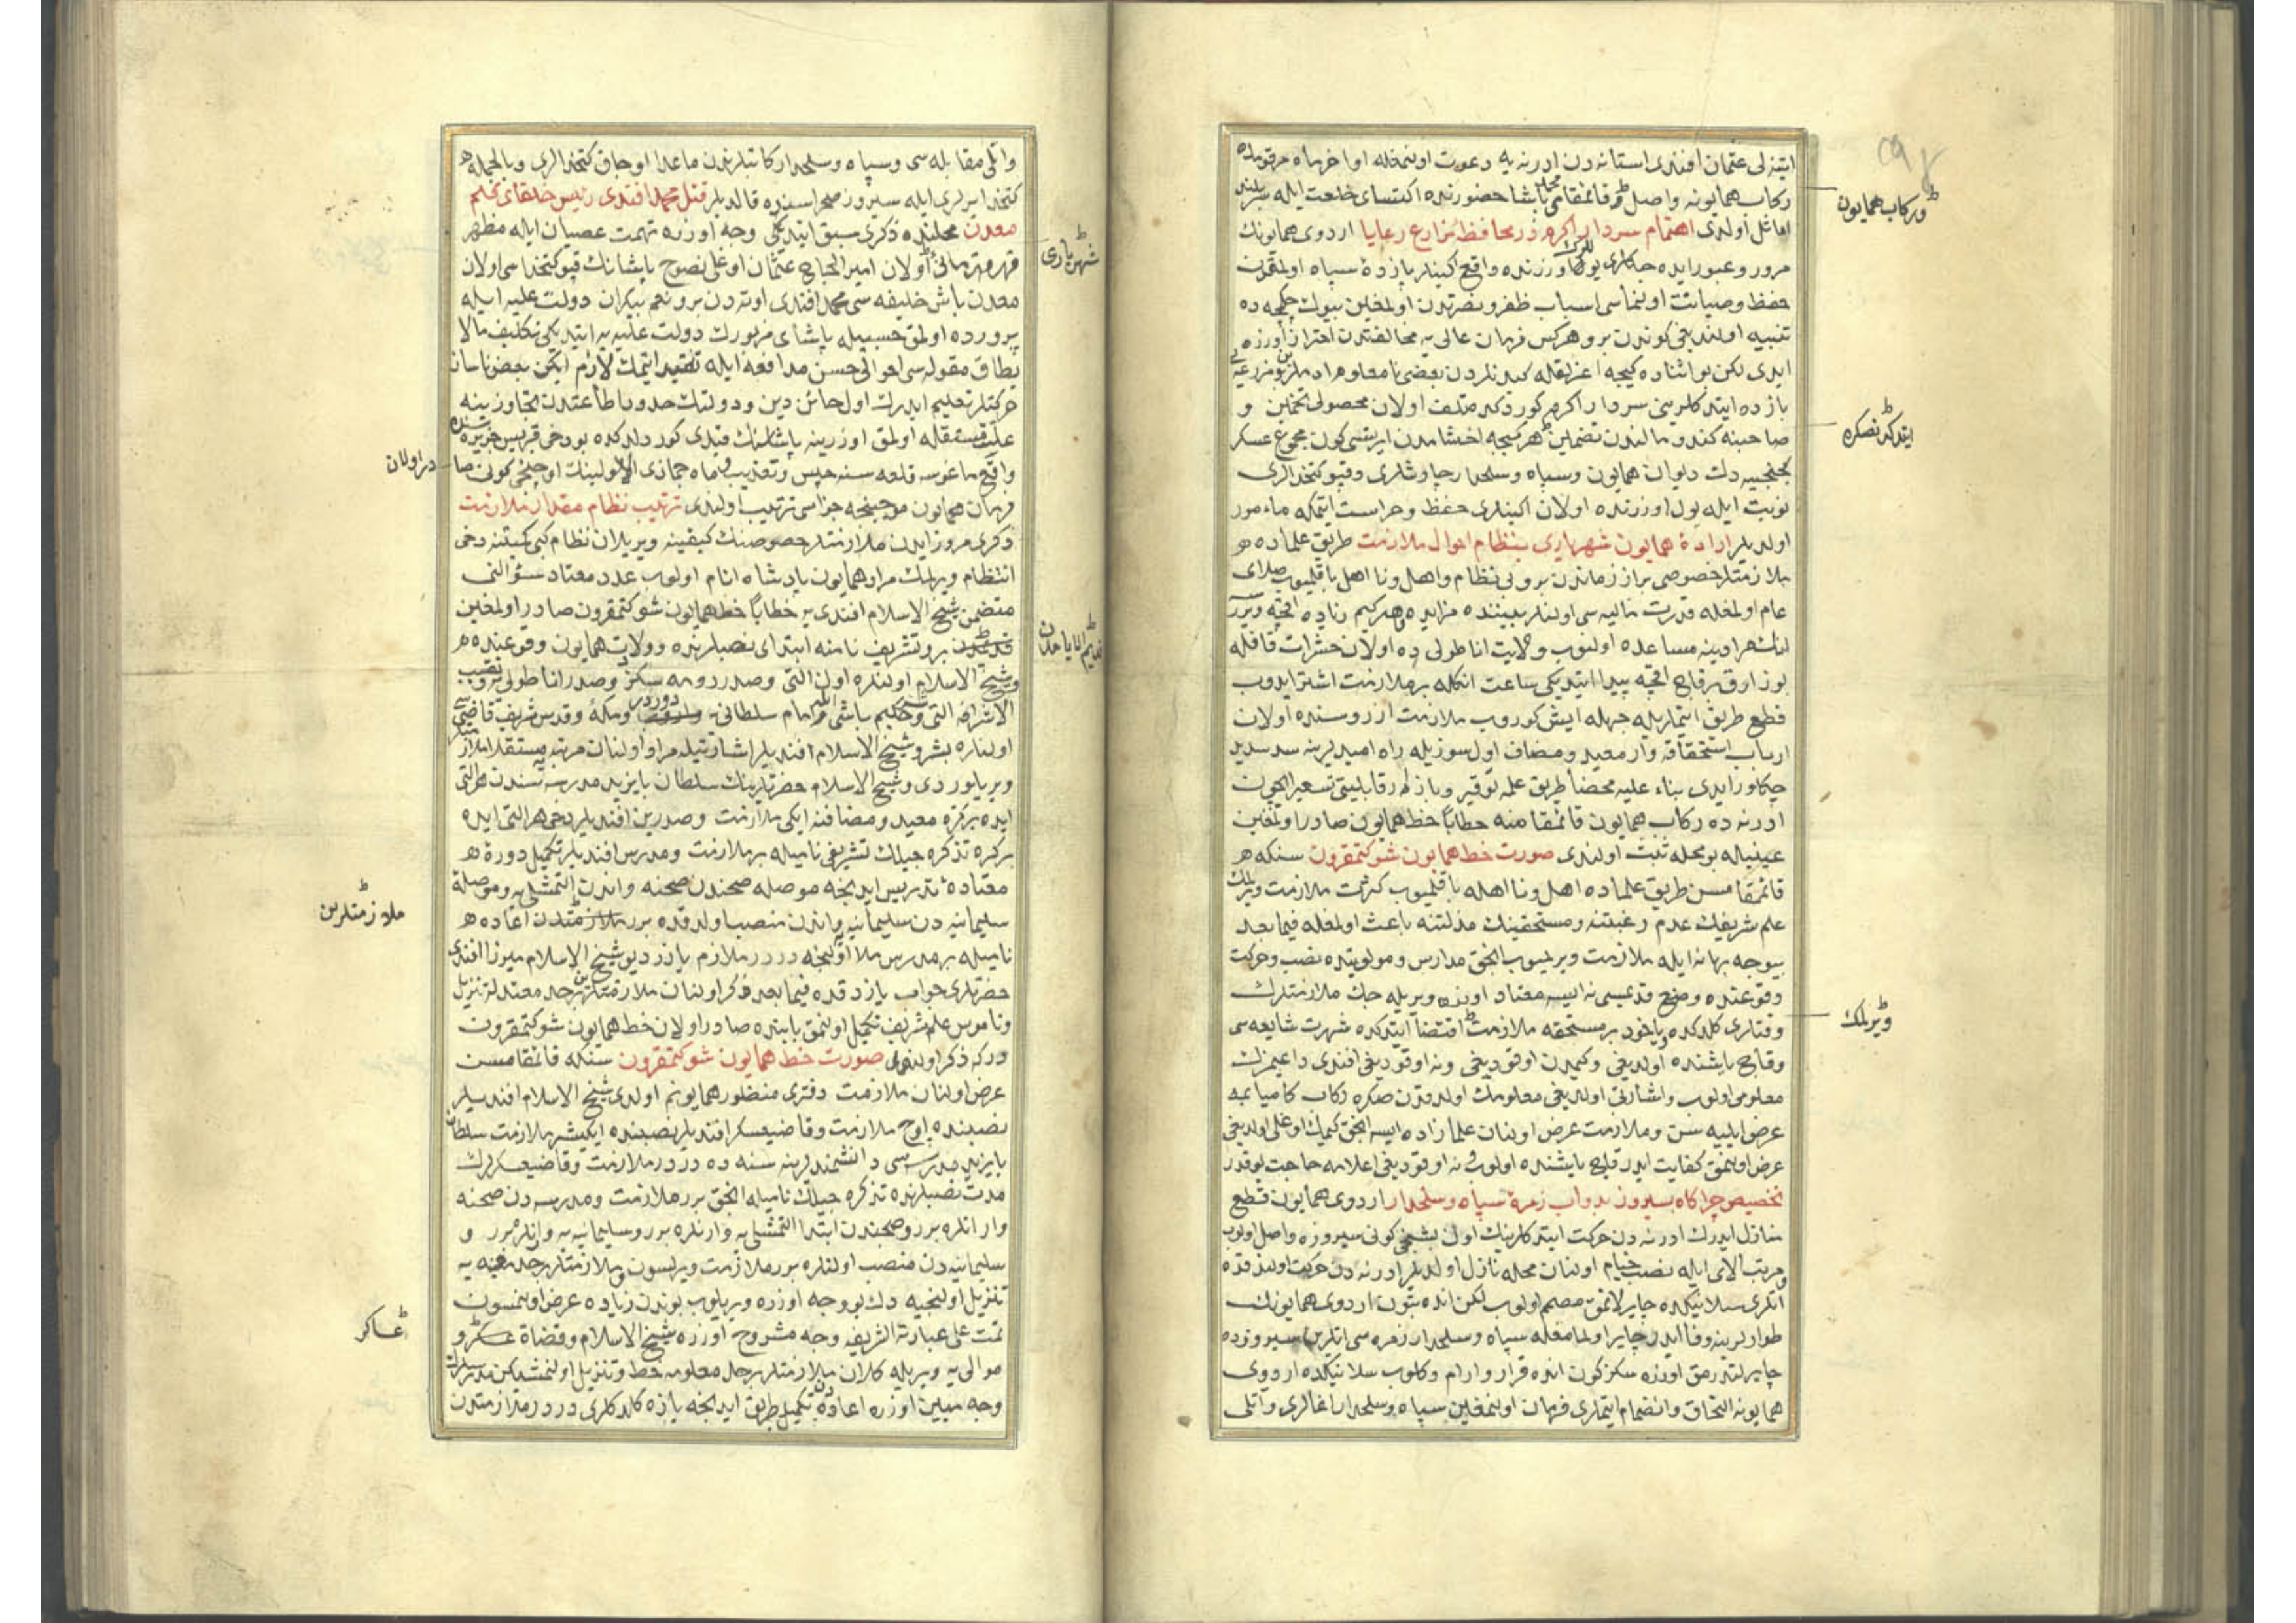 ایتنه لی عثمان افندی استانه دن ادرنه یه دعوت اولنمغله اواخر ماه مرقومده
رکاب همایونه واصل و قائمقام محمد پاشا حضورنده اکتسای خلعت ایله سربلند
اماثل اولدی اهتمام سردار اکرم در محافظهٔ مزارع رعایا اردوی همایونك
مرور و عبور ایده جکلری یوللرك اوزرنده واقع اکینلر یازده سپاه اولمقدن
حفظ و صیانت اولنماسی اسباب ظفر و نصرتدن اولمغین بیوك چکمجه ده
تنبیه اولندیغی کوندن برو هرکس فرمان عالی یه مخالفتدن احتراز اوزره
ایدی لکن بو اثناده کیجه اغرلقله کیدنلردن بعضی نامعلوم ادملر بر مزرعه یی
بازده ایتدکلرینی سردار اکرم کوردکده متلف اولان محصولی تخمین و
صاحبنه کندو مالندن تضمین هر کیجه اخشامدن ایرتسی کون مجموع عسکر
کچنجیه دك دیوان همایون و سپاه و سلحدار چاوشلری و قپو کتخدالری
نوبت ایله یول اوزرنده اولان اکینلری حفظ و حراست ایتمکه مأمور
اولدیلر ارادهٔ همایون شهریاری بنظام احوال ملازمت طریق علماده
ملازمتلر خصوصی براز زماندن برو بی نظام و اهل و نا اهل باقلمیوب صلای
عام اولمغله قدرت مالیه سی اولنلر بیننده مزایده و هر کیم زیاده اقچه ویرر
انك مرادینه مساعده اولنوب ولایت اناطولی ده اولان حشرات قافله
بوزارق برقاچ اقچه پیدا ایتدیکی ساعت انکله بر ملازمت اشترا ایدوب
قطع طریق ایتمکله جهله ایش کوروب ملازمت ارزوسنده اولان
ارباب استحقاقه وار معید و مضاف اول سوزیله راه امیدلرینه سد سدید
چکلور ایدی بناء علیه محضا طریق علمه توقیر و بازار رقابلیتی تسعیر ایچون
ادرنه ده رکاب همایون قائمقامنه خطاباً خط همایون صادر اولمغین
عینیله بو محله ثبت اولندی صورت خط همایون شوکتمقرون سنکه
قائمقامسن طریق علماده اهل و نا اهله باقلمیوب کثرت ملازمت ویرلمك
علم شریفك عدم رغبتنه و مستحقینك مذلتنه باعث اولمغله فیما بعد
بیوجه بهانه ایله ملازمت ویرلمیوب انجق مدارس و مولویتده نصب و حرکت
وقوعنده وضع قدیمسی نه ایسه معتاد اوزره ویریله جك ملازمتلرك
وقتلری کلدکده یاخود بر مستحقه ملازمت اقتضا ایتدکده شهرت شایعه سی
وقاچ یاشنده اولدیغی و کیمدن اوقودیغی و نه اوقودیغی افندی داعیمزك
معلومی اولوب و اشارتی اولدیغی معلومك اولدقدن صکره رکاب کامیابمه
عرض ایلیه سن و ملازمت عرض اولنان علما زاده ایسه انجق کیمك اوغلی اولدیغی
عرض اولنمق کفایت ایدر قاچ یاشنده اولوب و نه اوقودیغی اعلامه حاجت یوقدر
تخصیص چراکاه سیروز بدواب زمرهٔ سپاه و سلحدار اردوی همایون قطع
منازل ایدرك ادرنه دن حرکت ایتدکلرینك اون بشنجی کونی سیروزه واصل اولوب
مرتب الای ایله نصب خیام اولنان محله نازل اولدیلر ادرنه دن حرکت اولندقده
اتلری سلانیکده چایرلانمق مصمم اولوب لکن انده بتون اردوی همایونك
طوارلرینه وفا ایدر چایر اولمامغله سپاه و سلحدار زمره سی اتلرین سیروزده
چایرلتدرمق اوزره سکز کون انده قرار و ارام و کلوب سلانیکده اردوی
همایونه التحاق و انضمام ایتملری فرمان اولنمغین سپاه و سلحدار اغالری و اتلی
و رکاب همایون
ایتدکدنصکره
ویرلمك
واتلی مقابله سی و سپاه و سلحدار کاتبلرندن ماعدا اوجاق کتخدالری و بالجمله
کتخدا یرلری ایله سیروز صحراسنده قالدیلر قتل محمد افندی رئیس خلفای قلم
معدن محلنده ذکری سبق ایتدیکی وجه اوزره تهمت عصیان ایله مظهر
قهر قهرمانی اولان امیر الحاج عثمان اوغلی نصوح پاشانك قپو کتخداسی اولان
معدن باش خلیفه سی محمد افندی اوته دن برو نعم بیکران دولت علیه ایله
پرورده اولمق حسبیله پاشای مزبورك دولت علیه یه ایتدیکی تکلیف مالا
یطاق مقوله سی احوالی حسن مدافعه ایله تقیید ایتمك لازم ایکن بعض ناسزا
حرکتلر تعلیم ایدرك اول خائن دین و دولتك حدود اطاعتدن تجاوزینه
علت مستقله اولمق اوزرینه پاشانك قیدی کورلدکده بو دخی قبریس جزیره سنده
واقع ماغوسه قلعه سنه حبس و تعذیب و ماه جمازی الاولینك اوچنجی کونی صا
فرمان همایون موجبنجه جزاسی ترتیب اولندی ترتیب نظام مقدار ملازمت
ذکری مرور ایدن ملازمتلر خصوصنك کیفیتنه ویریلان نظام کبی کمیتنه دخی
انتظام ویرلمك مراد همایون پادشاه انام اولوب عدد معتاد سؤالنی
متضمن شیخ الاسلام افندی یه خطاباً خط همایون شوکتمقرون صادر اولمغین
قدیمدن برو تشریف نامنه ابتدای نصبلرنده و ولادت همایون وقوعنده
شیخ الاسلام اولنلره اون التی و صدر رومه سکز و صدر اناطولی یه و نقیب
الاشرافه التی و حکیم باشی و امام سلطانی و مکه و قدس شریف قاضیسی
اولنلره بشر و شیخ الاسلام افندیلر اشارتیله مراد اولنان مرتبه مستقلا ملازمتلر
ویریلوردی و شیخ الاسلام حضرتلرینك سلطان بایزید مدرسه سندن هر التی
ایده بر کره معید و مضافنه ایکی ملازمت و صدرین افندیلر دخی هر التی ایده
بر کره تذکره جیلك تشریفی نامیله بر ملازمت و مدرس افندیلر تکمیل دورهٔ
معتادهٔ تدریس ایدنجه موصله صحندن صحنه و اندن التمشلی یه و موصلهٔ
سلیمانیه دن سلیمانیه و اندن منصب اولدقده برر ملازمتدن اعاده
نامیله بر مدرس ملا اولنجه دردر ملازم یازر دیو شیخ الاسلام میرزا افندی
حضرتلری جواب یازدقده فیما بعد ذکر اولنان ملازمتلرین بر حد معتدله تنزیل
و ناموس علم شریف تکمیل اولنمق بابنده صادر اولان خط همایون شوکتمقرون
درکه ذکر اولندی صورت خط همایون شوکتمقرون سنکه قائمقامسن
عرض اولنان ملازمت دفتری منظور همایونم اولدی شیخ الاسلام افندیلر
نصبنده اوچ ملازمت و قاضیعسکر افندیلر نصبنده ایکیشر ملازمت سلطان
بایزید مدرسه سی دانشمندلرینه سنه ده دردر ملازمت و قاضیعسکرلرك
مدت نصبلرنده تذکره جیلك نامیله انجق برر ملازمت و مدرسه دن صحنه
وارانلره برر و صحندن ابتدا التمشلی یه وارنلره برر و سلیمانیه یه وارنلره برر و
سلیمانیه دن منصب اولنلره برر ملازمت ویرلسون و ملازمتلر بر حد معینه یه
تنزیل اولنجیه دك بو وجه اوزره ویریلوب بوندن زیاده عرض اولنمسون
تمت علی عبارته الشریفه وجه مشروح اوزره شیخ الاسلام و قضاة عسکر و
موالی یه ویریله کلان ملازمتلر بر حد معلومه حط و تنزیل اولنمشیکن مدرسلرك
وجه مبین اوزره اعاده دن تکمیل طریق ایدنجه یازه کلدکلری دردر ملازمتدن
شهریاری
در اولان
ملازمتلرین